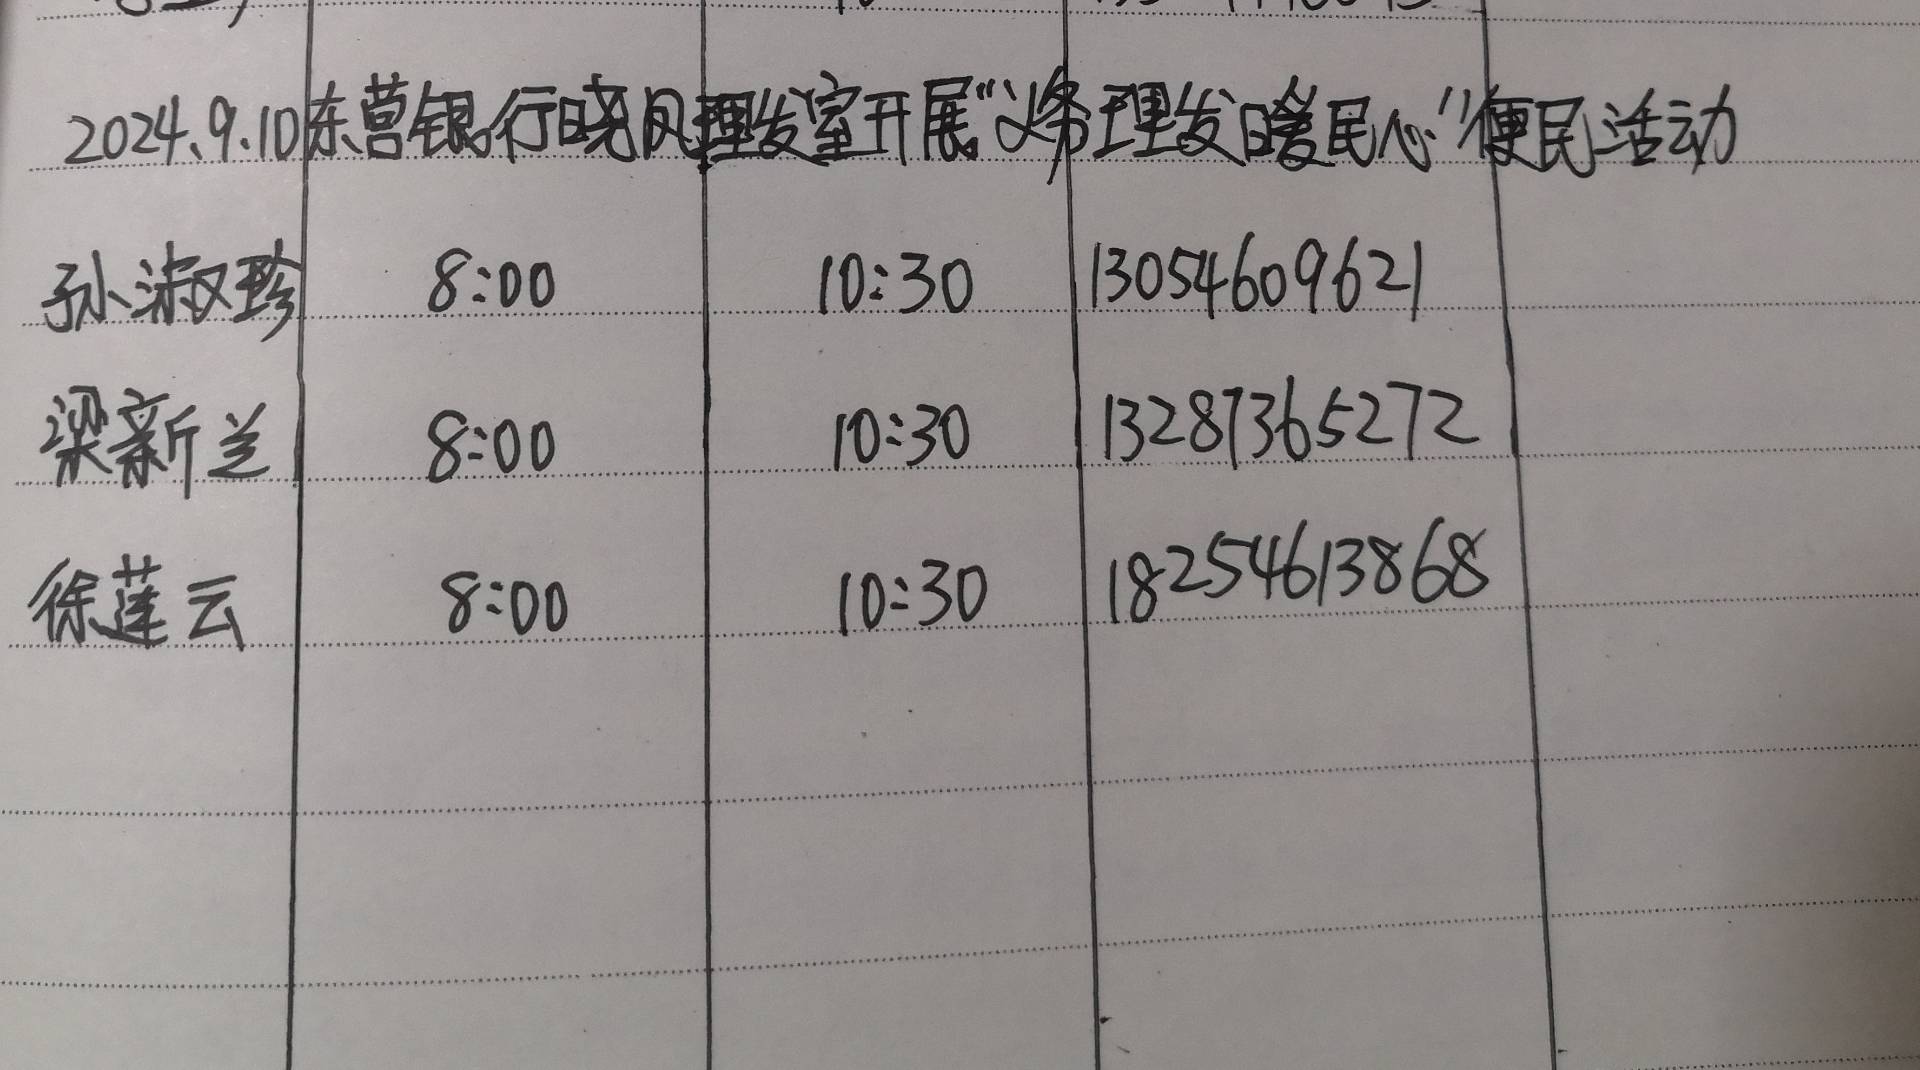 2024.9.10东营银行晓风理发室开展“义务理发暖民心”便民活动
孙淑珍 8:00 10:30 13054609621
梁新兰 8:00 10:30 13287365272
徐莲云 8:00 10:30 18254613868